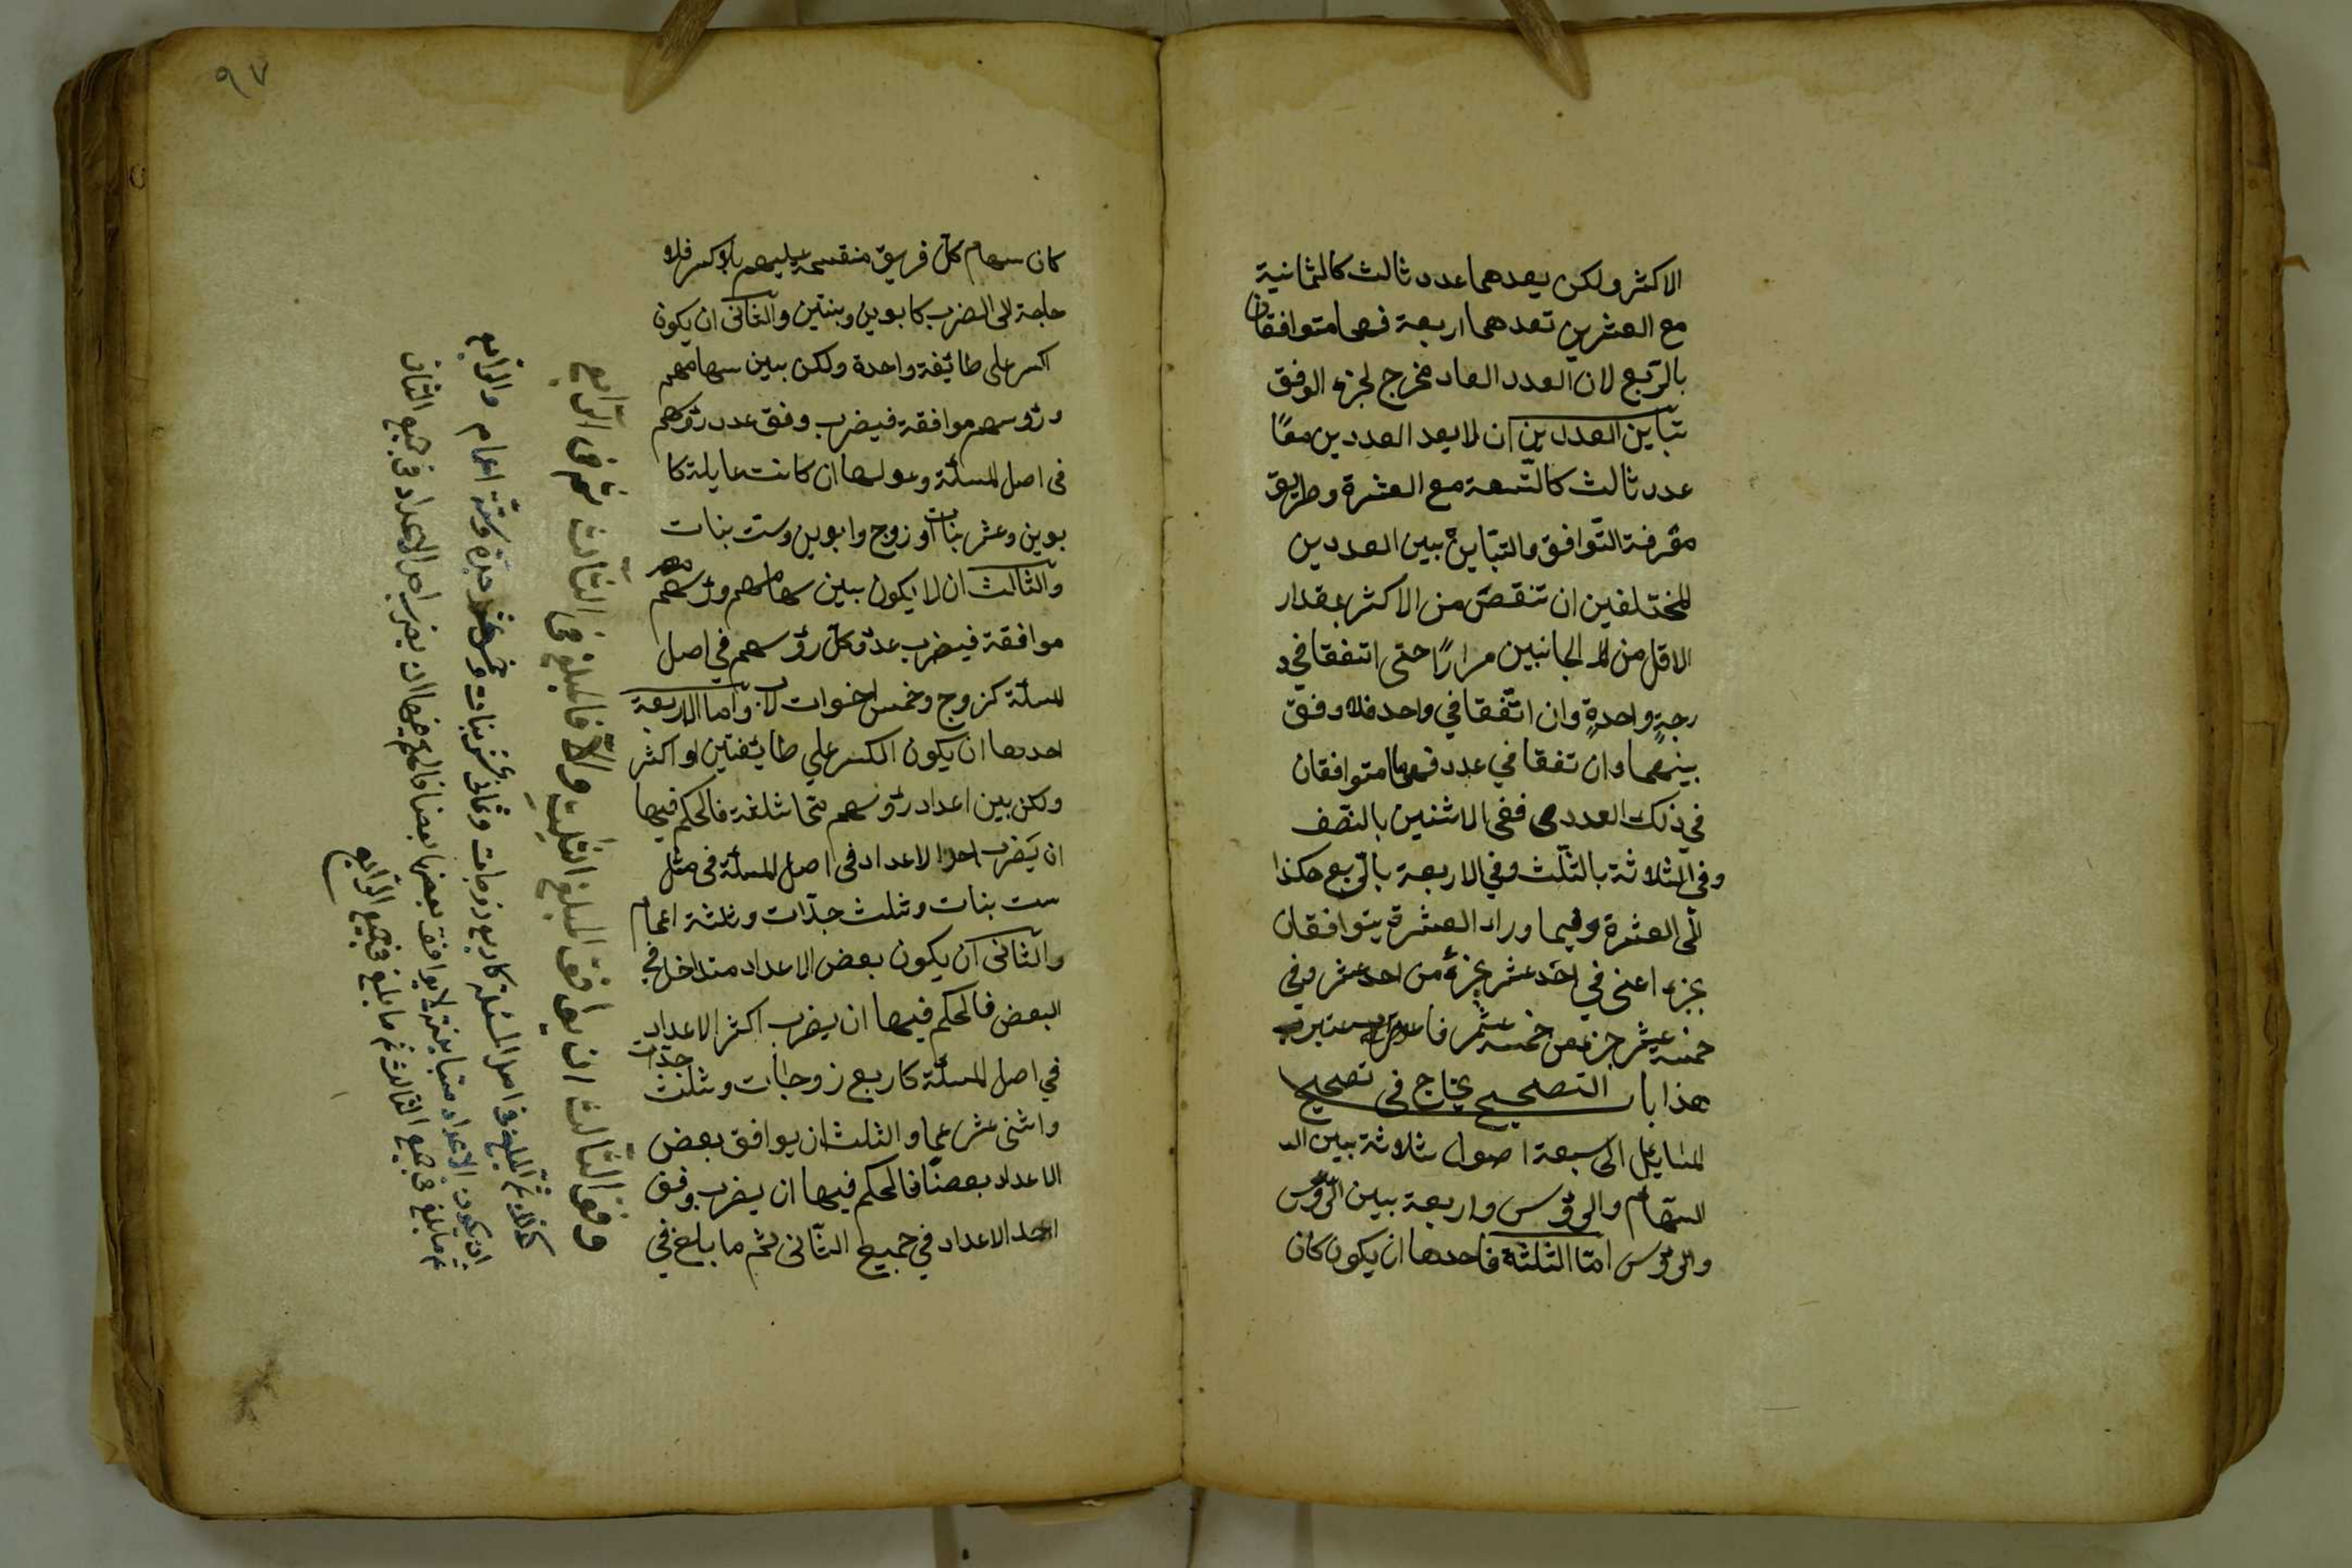 الاكثر ولكن يعدهما عدد ثالث كالثمانية
مع العشرين تعدهما اربعة فهما متوافقان
بالرّبع لان العدد العاد مخرج لجزء الوفق
تباين العددين ان لا يعد العددين معًا
عدد ثالث كالتّسعة مع العشرة وطريق
معرفة التّوافق والتباين بين العددين
المختلفين ان تنقص من الاكثر بمقدار
الاقل من الجانبين مرارًا حتى اتفقا في د
رجةٍ واحدةٍ وان اتّفقا في واحد فلا وفق
بينهما وان تفقا في عدد فهما متوافقان
في ذلك العدد ففي الاثنين بالنّصف
وفي الثلاثة بالثلث وفي الاربعة بالرّبع هكذا
الى العشرة وفيما وراء العشرة يتوافقان
بجزء اعني في احد عشر بجزءٍ من احد عشر وفي
خمسة عشر جزء من خمسة عشر فاعتبر
هذا باب التصحيح يحتاج في تصحيح
المسايل الى سبعة اصول ثلاثة بين الـ
السّهام والرؤس واربعة بين الرؤس
والرؤس امّا الثلثة فاحدها ان يكون كان
٩٧
كان سهام كلّ فريق منقسمة عليهم بلا كسر فلا
حاجة الى الضرب كابوين وبنتين والثانى ان يكون
اكسر على طائفة واحدة ولكن بين سهامهم
ورؤسهم موافقة فيضرب وفق عدد رؤسهم
فى اصل المسئلة وعولها ان كانت عايلة كا
بوين وعشر بنات او زوج وابوين وست بنات
والثالث ان لا يكون بين سهامهم ورؤسهم
موافقة فيضرب عدد كل رؤسهم في اصل
المسئلة كزوج وخمس اخوات لاب واما الاربعة
احدها ان يكون الكسر علي طائفتين او اكثر
ولكن بين اعداد رؤسهم مماثلة فالحكم فيها
ان يَضرب احد الاعداد فى اصل المسئلة فى مثل
ست بنات وثلث جدّات وثلثة اعمام
والثانى ان يكون بعض الاعداد متداخل في
البعض فالحكم فيها ان يضرب اكثر الاعداد
في اصل المسئلة كاربع زوجات وثلث جدّات
واثنى عشر عما والثلث ان يوافق بعض
الاعداد بعضًا فالحكم فيها ان يضرب وفق
احد الاعداد في جميع الثّانى ثم ما بلغ في
وفق الثّالث ان يوافق المبلغ الثّلث والّا فالمبلغ فى الثّالث ثم فى الرّابع
كذلك ثم المبلغ فى اصل المسئلة كاربع زوجات وثمانى عشر بنات وخمس عشر جدّة وستّة اعمام والرّابع
ان يكون الاعداد متباينة لا يوافق بعضها بعضا فالحكم فيها ان يضرب احد الاعداد فى جميع الثانى
ثم ما بلغ فى جميع الثالث ثم ما بلغ فى جميع الرّابع